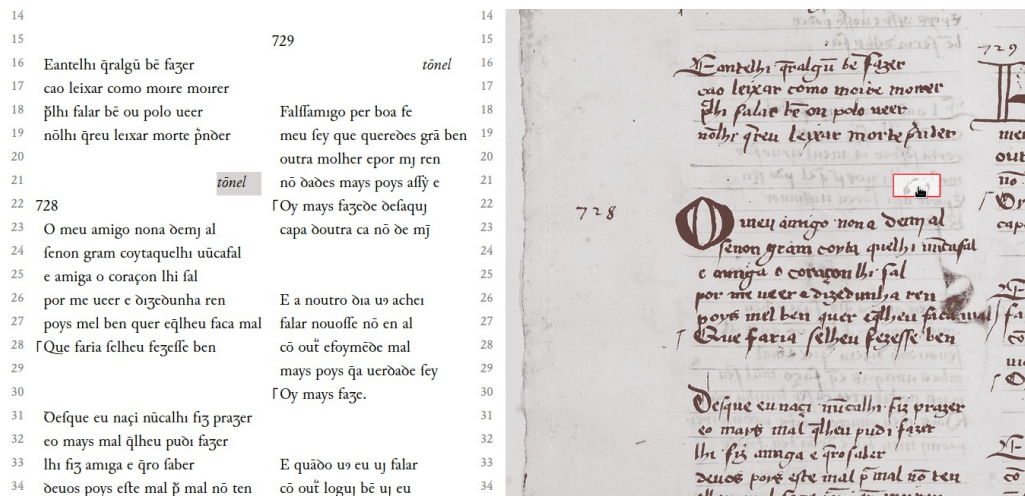 14
15
16 Eantelhı q̄ralgū bē faꝫer
17 cao leixar como moıre moırer
18 p̄lhı falar bē ou polo ueer
19 nōlhı q̄reu leıxar morte p̄nder
20
21 tōnel
22 728
23 O meu amigo nona demȷ al
24 ſenon gram coytaquelhı uūcafal
25 e amiga o coraçon lhi ſal
26 por me ueer e dıꝫedunha ren
27 poys mel ben quer eq̄lheu faca mal
28 ⎡Que faria ſelheu feꝫeſſe ben
29
30
31 Deſque eu naçi nūcalhı fiꝫ praꝫer
32 eo mays mal q̄lheu pudı faꝫer
33 lhı fiꝫ amıga e q̄ro ſaber
34 deuos poys eſte mal p̄ mal nō ten
729
tōnel
Falſſamıgo per boa fe
meu ſey que queredes grā ben
outra molher epor mȷ ren
nō dades mays poys aſſẏ e
⎡Oy mays faꝫede deſaquȷ
capa doutra ca nō de mȷ̄
E a noutro dıa uꝯ acheı
falar nouoſſe nō en al
cō out̄ efoymēde mal
mays poys q̄a uerdade ſey
⎡Oy mays faꝫe.
E quādo uꝯ eu uȷ falar
cō out̄ loguȷ bē uȷ eu
14
15
16
17
18
19
20
21
22
23
24
25
26
27
28
29
30
31
32
33
34
Eantelhı q̄ralgū bē faꝫer
cao leixar como moıre morrer
p̄lhı falar bē ou polo ueer
nōlhı q̄reu leıxar morte p̄nder
728
O meu amigo nona demȷ al
ſenon gram coyta quelhı uūcafal
e amiga o coraçon lhı ſal
por me ueer e dıꝫedunha ren
poys mel ben quer eq̄lheu faca mal
⎡Que faria ſelheu feꝫeſſe ben
Deſque eu naçi nūcalhı fiꝫ praꝫer
eo mays mal q̄lheu pudı faꝫer
lhı fiꝫ amıga e q̄ro ſaber
deuos poys eſte mal p̄ mal nō ten
729